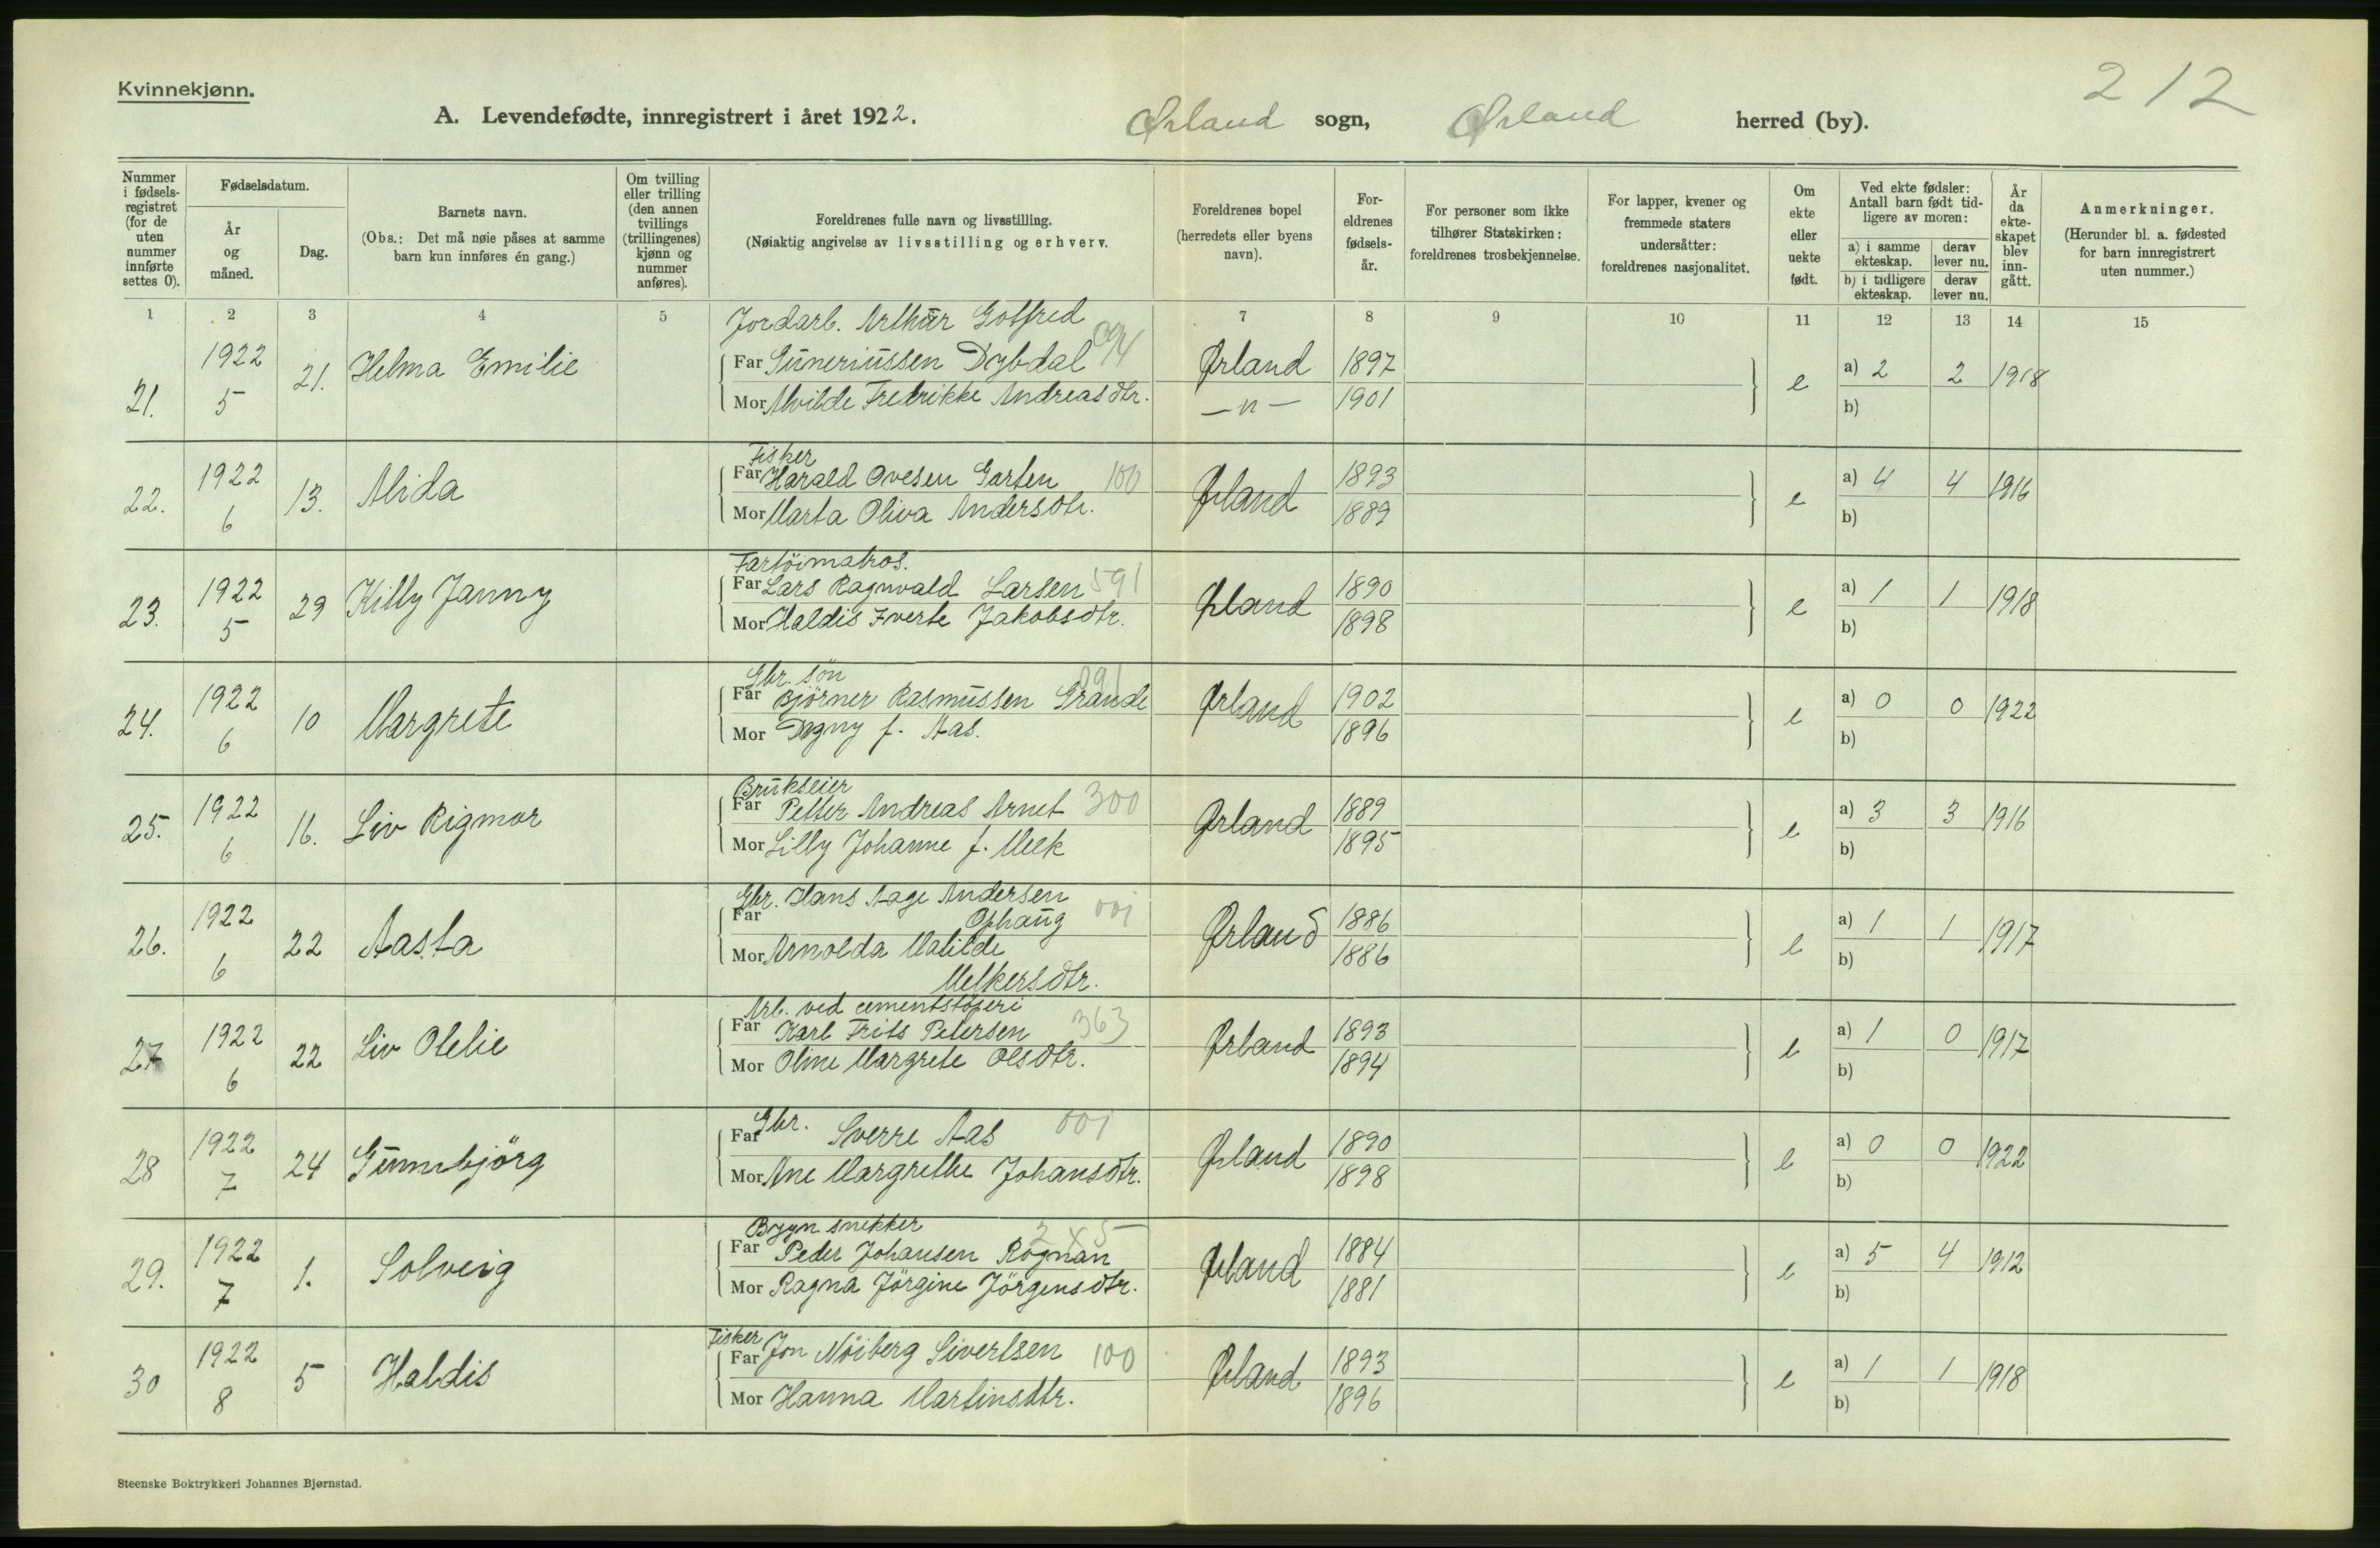 Kvinnekjønn.
212
A. Levendefødte, innregistrert i året 1922. Ørland sogn, Ørland herred (by).
Nummer i fødselsregistret (for de uten nummer innførte settes 0).
Fødselsdatum.
År og måned.
Dag.
Barnets navn.
(Obs.: Det må nøie påses at samme barn kun innføres én gang.)
Om tvilling eller trilling (den annen tvillings (trillingenes) kjønn og nummer anføres).
Foreldrenes fulle navn og livsstilling.
(Nøiaktig angivelse av livsstilling og erhverv.
Foreldrenes bopel (herredets eller byens navn).
Foreldrenes fødselsår.
For personer som ikke tilhører Statskirken: foreldrenes trosbekjennelse.
For lapper, kvener og fremmede staters undersåtter: foreldrenes nasjonalitet.
Om ekte eller uekte født.
Ved ekte fødsler: Antall barn født tidligere av moren:
a) i samme ekteskap. derav lever nu.
b) i tidligere ekteskap. derav lever nu.
År da ekteskapet blev inngått.
Anmerkninger.
(Herunder bl. a. fødested for barn innregistrert uten nummer.)
1 2 3 4 5 7 8 9 10 11 12 13 14 15
Jordarb. Arthur Gotfred
21. 1922 5 21. Helma Emilie Far Guneriussen Dybdal 094 Ørland 1897 e a) 2 2 1918
Mor Alvilde Fredrikke Andreasdtr. — " — 1901 b)
Fisker
22. 1922 6 13. Alida Far Harald Ovesen Garten 100 Ørland 1893 e a) 4 4 1916
Mor Marta Oliva Andersdtr. 1889 b)
Fartöimatros.
23. 1922 5 29 Killy Janny Far Lars Ragnvald Larsen 591 Ørland 1890 e a) 1 1 1918
Mor Haldis Iverte Jakobsdtr. 1898 b)
Gbr. sön 091
24. 1922 6 10 Margrete Far Björner Rasmussen Grande Ørland 1902 e a) 0 0 1922
Mor Dagny f. Aas. 1896 b)
Brukseier
25. 1922 6 16. Liv Rigmor Far Petter Andreas Arnet 300 Ørland 1889 e a) 3 3 1916
Mor Lilly Johanne f. Meek 1895 b)
Gbr. Hans Aage Andersen
26. 1922 6 22 Aasta Far Ophaug 001 Ørland 1886 e a) 1 1 1917
Mor Arnolda Matilde 1886 b)
Melkersdtr.
Arb. ved cementstöperi
27 1922 6 22 Liv Olelie Far Karl Frits Petersen 363 Ørland 1893 e a) 1 0 1917
Mor Oline Margrete Olsdtr. 1894 b)
28 1922 7 24 Gunnbjörg Far Gbr. Sverre Aas 001 Ørland 1890 e a) 0 0 1922
Mor Ane Margrethe Johansdtr. 1898 b)
Bygn snekker 2x5
29. 1922 7 1. Solveig Far Peder Johansen Rognan Ørland 1884 e a) 5 4 1912
Mor Ragna Jörgine Jörgensdtr. 1881 b)
Fisker
30 1922 8 5 Haldis Far Jon Nöiberg Sivertsen 100 Ørland 1893 e a) 1 1 1918
Mor Hanna Martinsdtr. 1896 b)
Steenske Boktrykkeri Johannes Bjørnstad.